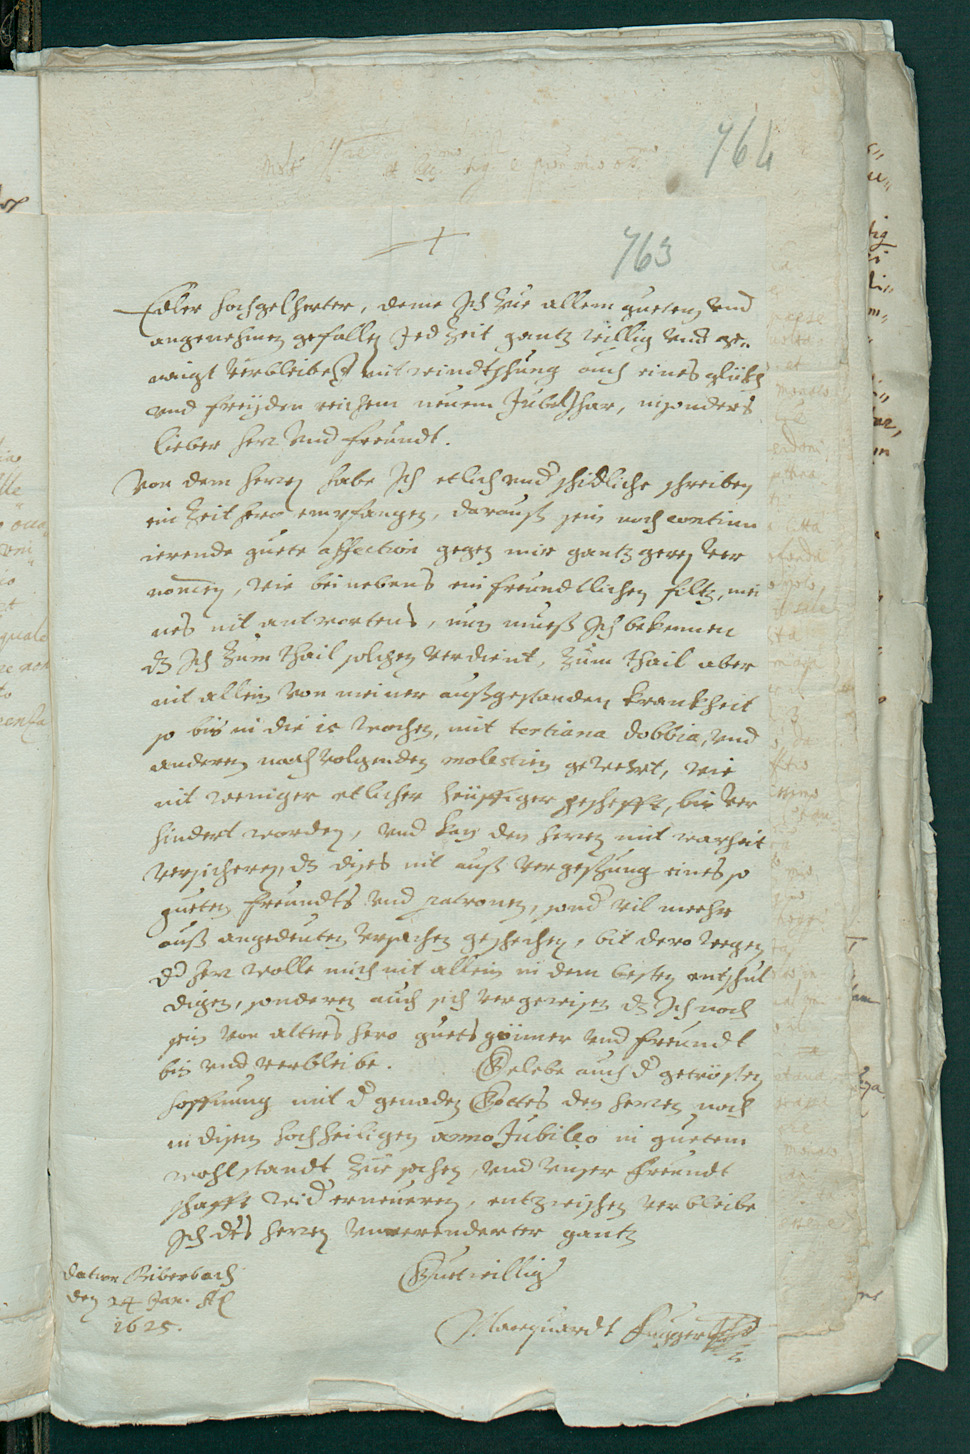 764
763
Edler hochgelherter, deme Ich zue allem gueten, und
angenehmen gefallen Jed Zeit gantz willig und ge„
naigt verbleibe, mit windtschung auch eines glükh
und freyden reichem neuem Jubel Jhar, insonders
lieber herr und freundt.
Von dem herren habe Ich etlich underschidliche schreiben
ein Zeit hero empfangen, darauß sein noch continu
ierende guete affection gegen mir gantz geren ver
nomen, wie bei nebens ein freundtlichen filtz, mei
nes nit antwortens, nun mueß Ich bekennen
dz Ich zum thail solchen verdient, zum thail aber
nit allein von meiner außgestanden krankheit
so bis in die 15 wochen, mit tertiana dobbia, und
anderen nachvolgenden molestien gewehrt, wie
nit weniger etlicher heüffiger gescheffte, bin ver
hindert worden, und kan den herren mit warheit
versicheren, dz dises nit auß vergessung eines so
gueten freundts und patronen, sond vil mechr
auß angedeuten ursachen geschechen, bit dero wegen
d herr wolle mich nit allein in dem besten entschul
digen, sonderen auch sich vergewisen dz Ich noch
sein von alters hero guets günner und freundt
bin und verbleibe. Gelebe auch d getrösten
hoffnung mit d genaden Gottes den herren noch
in disem hochheiligen anno Jubileo in guetem
wohlstandt zue sechen, und unser freundt
schafft wid erneueren, entzwischen verbleibe
Ich des herren unverenderter gantz
Guetwillig
Datum Biberbach
den 24 Jan. A
1625.
Marquardt Fugger